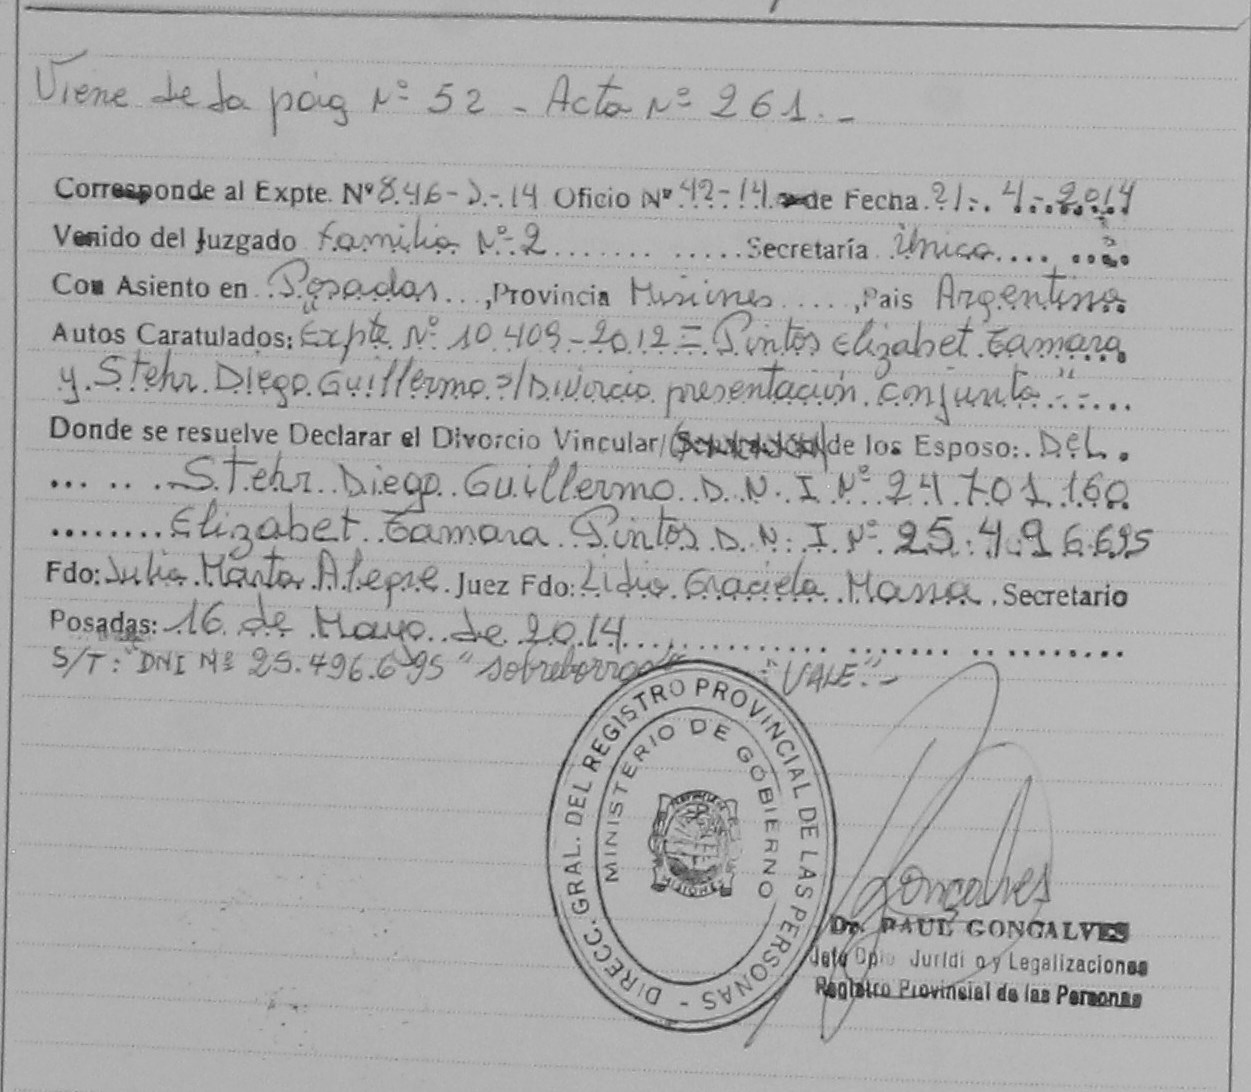 Viene de la pág Nº 52 - Acta Nº 261.-
Corresponde al Expte. Nº 846-J-14 Oficio Nº 42-14 de Fecha 21-4-2014
Venido del Juzgado Familia Nº 2 Secretaría Única
Con Asiento en Posadas, Provincia Misiones, Pais Argentina
Autos Caratulados: "Expte Nº 10.409-2012 = Pintos Elizabet Tamara
y Stehr Diego Guillermo s/Divorcio presentación conjunta"
Donde se resuelve Declarar el Divorcio Vincular/ de los Esposo: DEL
Stehr Diego Guillermo D.N.I Nº 24.701.160
Elizabet Tamara Pintos D.N.I Nº 25.496.695
Fdo: Marta Juez Fdo: Lidia Graciela Secretario
Posadas: 16 de Mayo de 2014
S/T: "DNI Nº 25.496.695" sobreborrado "VALE".-
DIRECC. GRAL. DEL REGISTRO PROVINCIAL DE LAS PERSONAS -
MINISTERIO DE GOBIERNO
MISIONES
Gonçalves
Dr. RAUL GONCALVES
Jefe Dpto Jurídico y Legalizaciones
Registro Provincial de las Personas